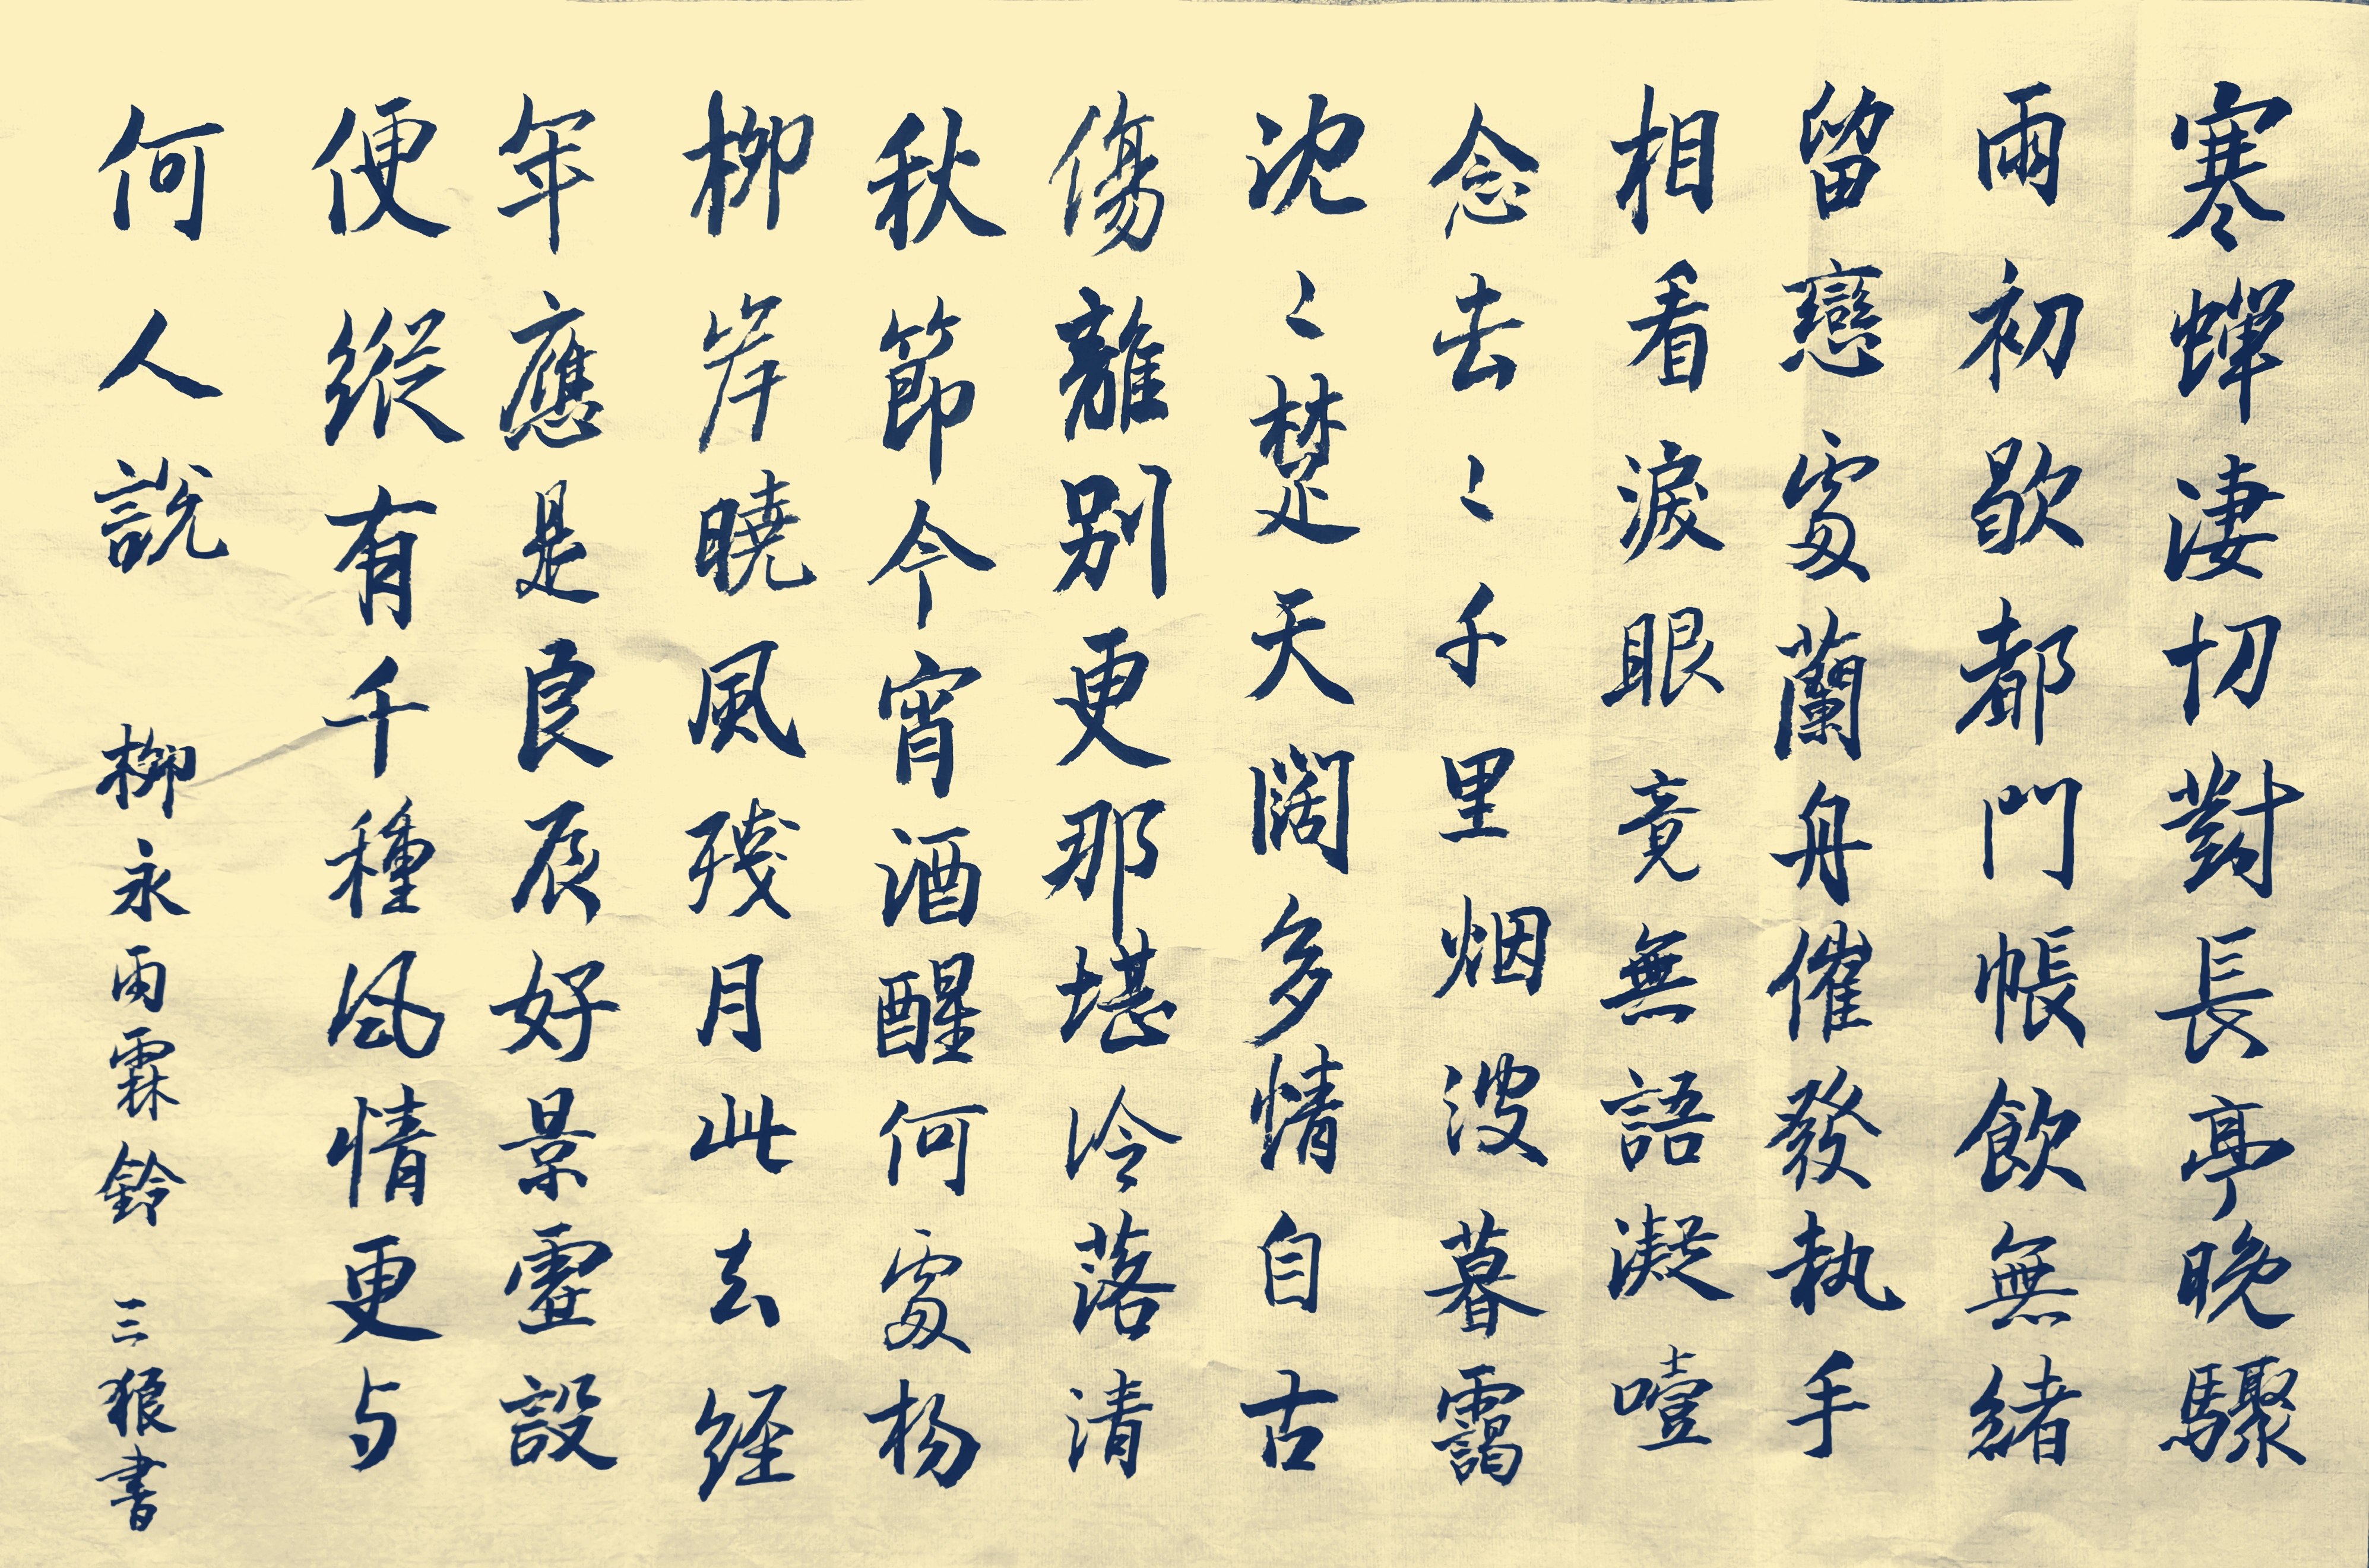 寒蟬淒切對長亭晚驟
雨初歇都門帳飲無緒
留戀處蘭舟催發執手
相看淚眼竟無語凝噎
念去〻千里烟波暮靄
沈〻楚天闊多情自古
傷離別更那堪冷落清
秋節今宵酒醒何處杨
柳岸曉風殘月此去經
年應是良辰好景虛設
便縱有千種风情更与
何人說 柳永雨霖鈴 三狼書